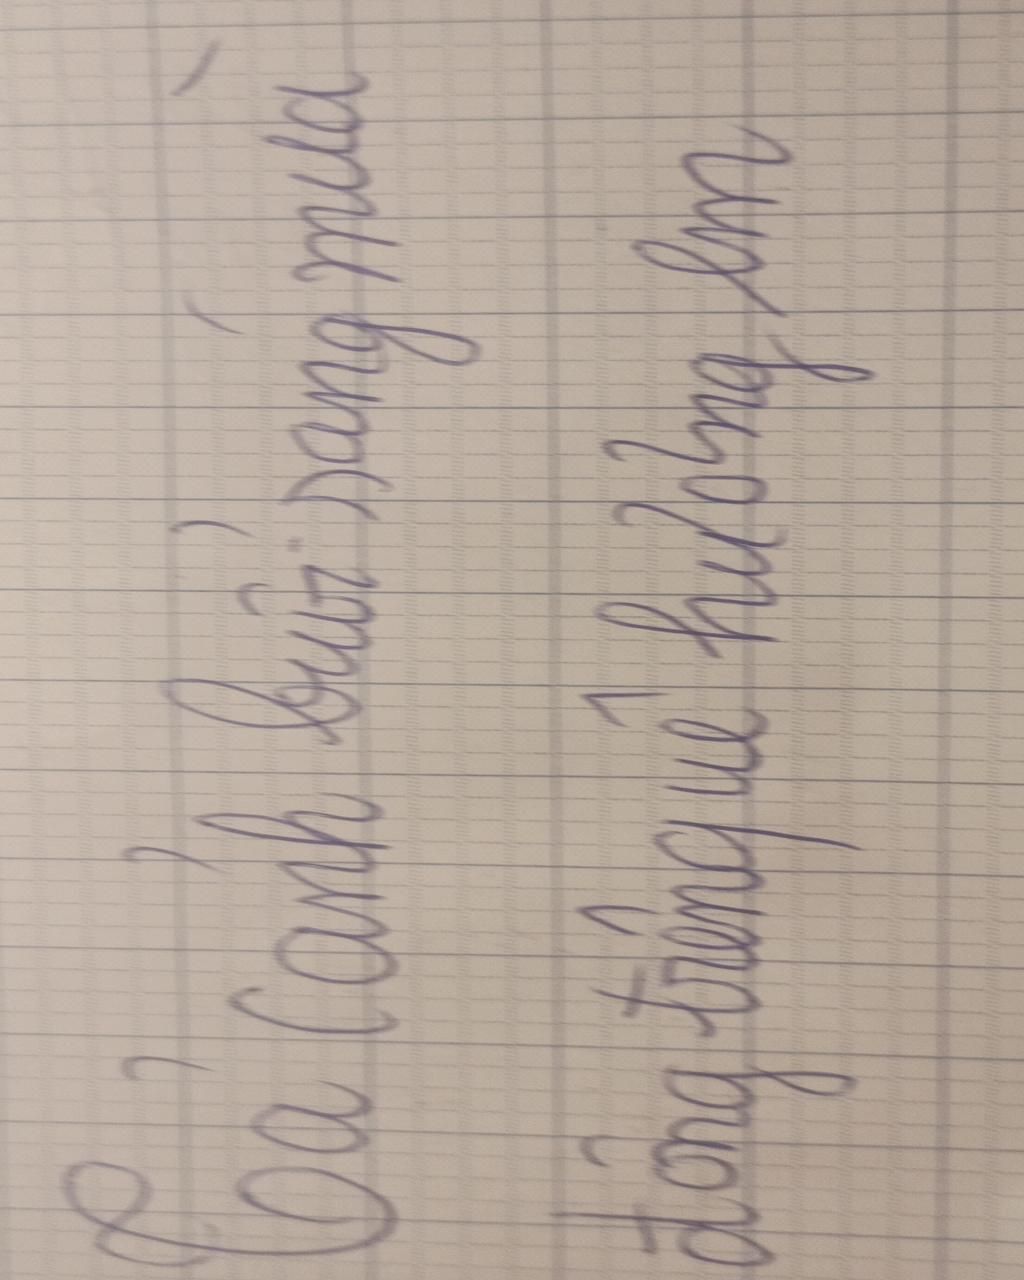 Tả cảnh buổi sáng mùa
đông trên quê hương em